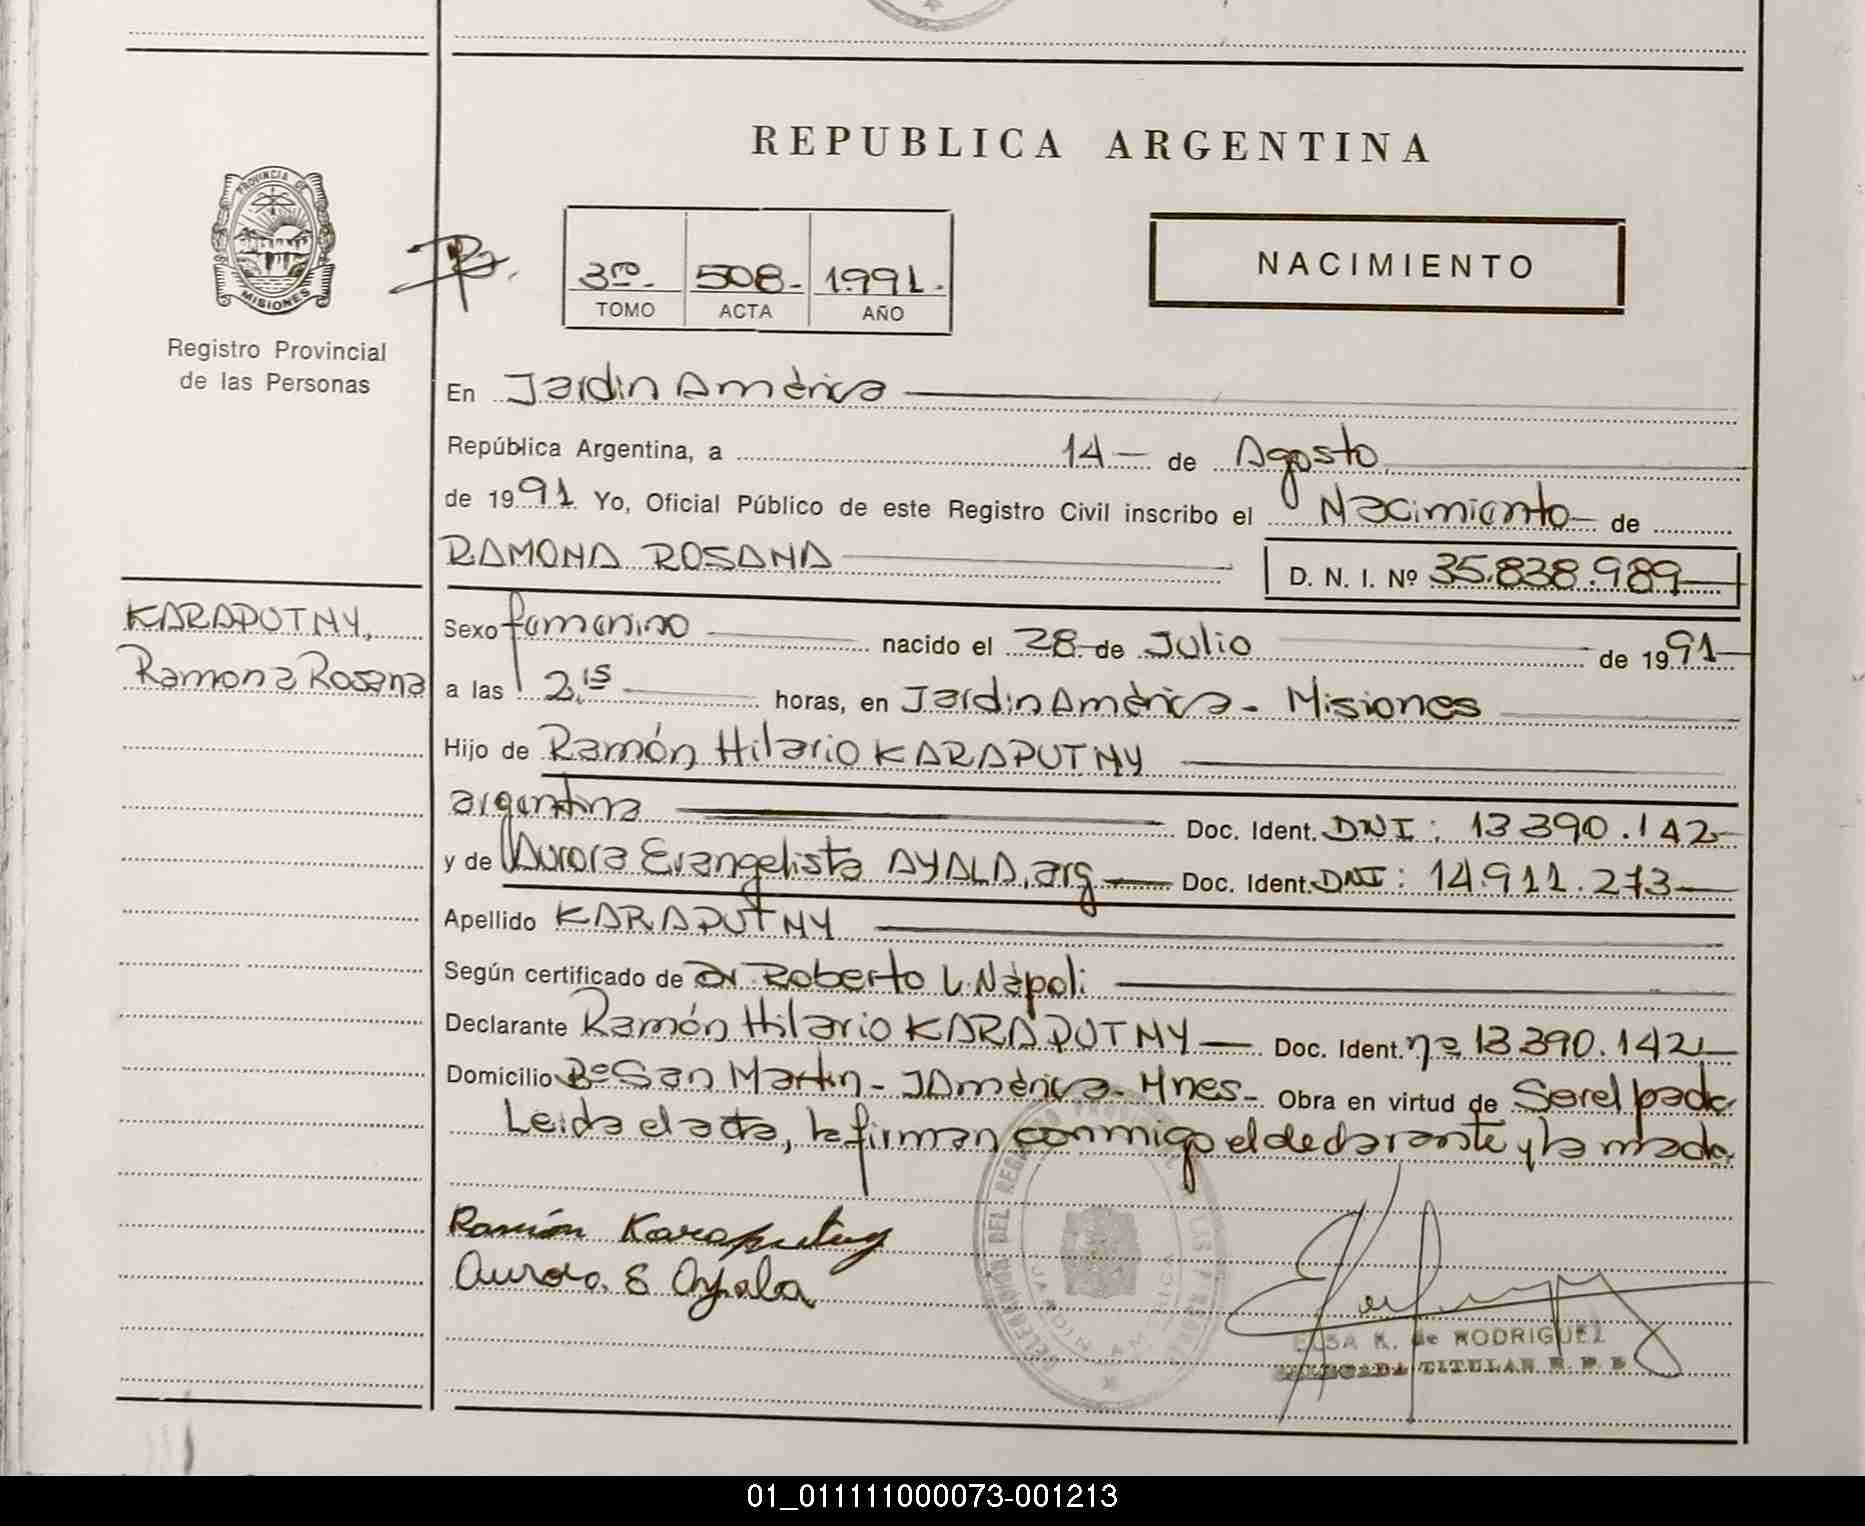 REPUBLICA ARGENTINA
PROVINCIA DE
MISIONES
Registro Provincial
de las Personas
3ro.- 508.- 1.991.-
TOMO ACTA AÑO
NACIMIENTO
En Jardin América
República Argentina, a 14 — de Agosto
de 1991 Yo, Oficial Público de este Registro Civil inscribo el Nacimiento — de
RAMONA ROSANA D. N. I. Nº 35.838.989
KARAPUTNY,
Ramona Rosana
Sexo femenino nacido el 28 de Julio de 1991
a las 2,15 horas, en Jardin América - Misiones
Hijo de Ramón Hilario KARAPUTNY
argentina Doc. Ident. DNI: 13390.142
y de Aurora Evangelista AYALA, arg — Doc. Ident. DNI: 14.911.273
Apellido KARAPUTNY
Según certificado de Dr Roberto L Nápoli
Declarante Ramón Hilario KARAPUTNY — Doc. Ident. nº 13390.142
Domicilio Bº San Martin - J América - Mnes - Obra en virtud de Ser el padre
Leida el acta, la firman conmigo el declarante y la madre.
Ramón Karaputny
Aurora E Ayala
ELSA K. de RODRIGUEZ
DELEGADA TITULAR R. P. P.
01_011111000073-001213